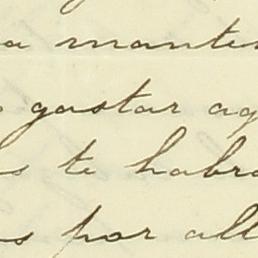 a manten
gastar aq
s te habra
s por all